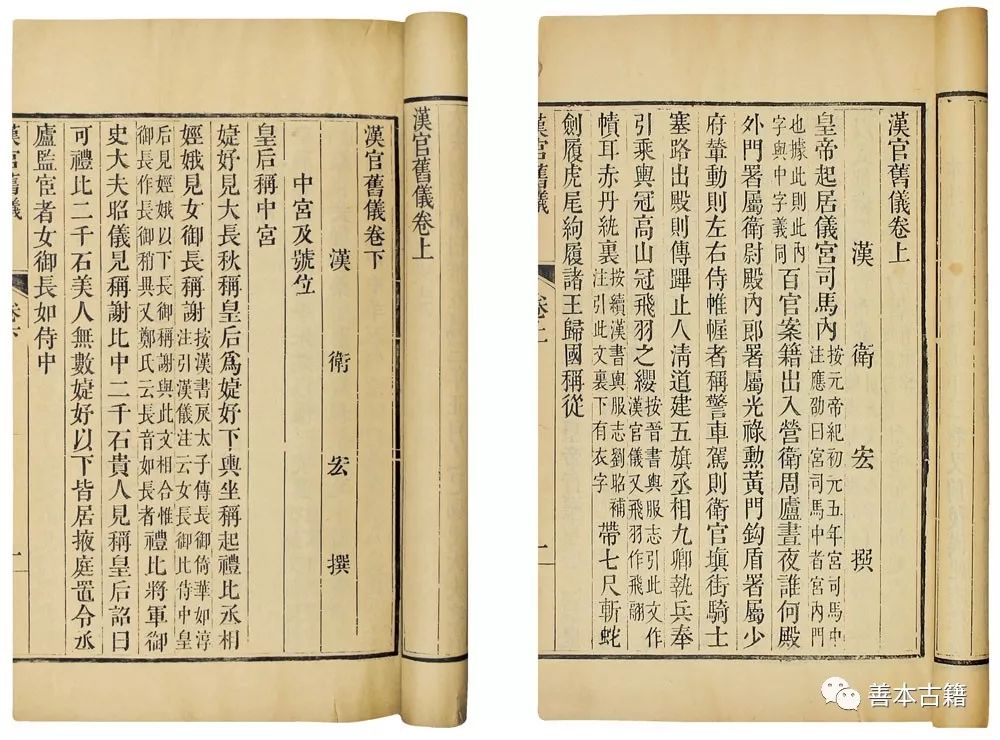 漢官舊儀卷上
漢 衛 宏 撰
皇帝起居儀宮司馬內按元帝紀初元五年宮司馬中注應劭曰宮司馬中者宮內門
也據此則此內字與中字義同百官案籍出入營衛周廬晝夜誰何殿
外門署屬衛尉殿內郎署屬光祿勳黃門鈎盾署屬少
府輦動則左右侍帷幄者稱警車駕則衛官塡街騎士
塞路出殿則傳蹕止人清道建五旗丞相九卿執兵奉
引乘輿冠高山冠飛羽之纓按晉書輿服志引此文作漢官儀又飛羽作飛翮
幘耳赤丹紈裏按續漢書輿服志劉昭補注引此文裏下有衣字帶七尺斬蛇
劍履虎尾絇履諸王歸國稱從
漢官舊儀 卷上 一
漢官舊儀卷上
漢官舊儀卷下
漢 衛 宏 撰
中宮及號位
皇后稱中宮
婕妤見大長秋稱皇后爲婕妤下輿坐稱起禮比丞相
娙娥見女御長稱謝按漢書戾太子傳長御倚華如淳注引漢儀注云女長御比侍中皇
后見娙娥以下長御稱謝與此文相合惟御長作長御稍異又鄭氏云長音如長者禮比將軍御
史大夫昭儀見稱謝比中二千石貴人見稱皇后詔曰
可禮比二千石美人無數婕妤以下皆居掖庭置令丞
廬監宦者女御長如侍中
漢官舊儀 卷下 一
善本古籍